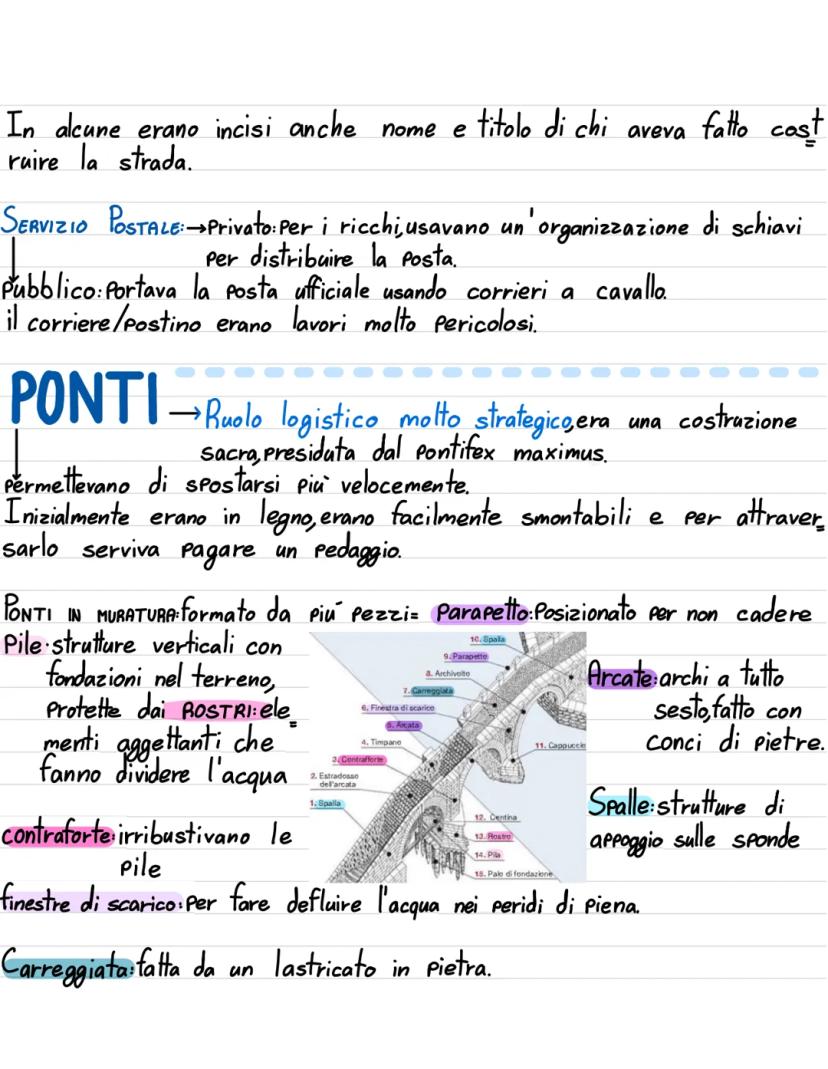 In alcune erano incisi anche nome e titolo di chi aveva fatto cost
ruire la strada.
SERVIZIO POSTALE:→Privato:Per i ricchi,usavano un'organizzazione di schiavi
per distribuire la posta.
Pubblico:Portava la posta ufficiale usando corrieri a cavallo.
il corriere/postino erano lavori molto pericolosi.
PONTI →Ruolo logistico molto strategico,era una costruzione
sacra,presiduta dal pontifex maximus.
permettevano di spostarsi più velocemente.
Inizialmente erano in legno,erano facilmente smontabili e per attraver
sarlo serviva pagare un pedaggio.
PONTI IN MURATURA:formato da più pezzi= Parapetto:Posizionato per non cadere
Pile:strutture verticali con
fondazioni nel terreno,
protette dai ROSTRI:ele
menti aggettanti che
fanno dividere l'acqua
contraforte:irribustivano le
pile
10. Spalla
9. Parapetto
8. Archivolto
7. Carreggiata
6. Finestra di scarico
5. Arcata
4. Timpano
3. Contrafforte
2. Estradosso
dell'arcata
1. Spalla
11. Cappuccio
12. Centina
13. Rostro
14. Pila
15. Palo di fondazione
Arcate:archi a tutto
sesto,fatto con
conci di pietre.
Spalle:strutture di
appoggio sulle sponde
finestre di scarico:per fare defluire l'acqua nei peridi di piena.
Carreggiata:fatta da un lastricato in pietra.